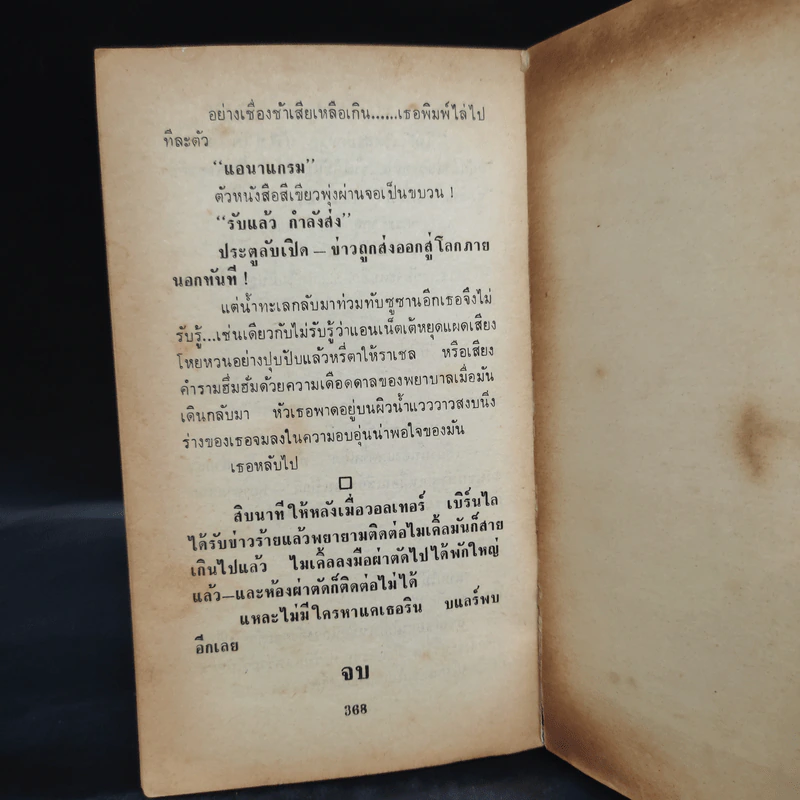 อย่างเชื่องช้าเสียเหลือเกิน......เธอพิมพ์ไล่ไป
ทีละตัว
“แอนาแกรม”
ตัวหนังสือสีเขียวพุ่งผ่านจอเป็นขบวน !
“รับแล้ว กำลังส่ง”
ประตูลับเปิด – ข่าวถูกส่งออกสู่โลกภาย
นอกทันที !
แต่น้ำทะเลกลับมาท่วมทับซูซานอีกเธอจึงไม่
รับรู้...เช่นเดียวกับไม่รับรู้ว่าแอนเน็ตเต้หยุดแผดเสียง
โหยหวนอย่างปุบปับแล้วหรี่ตาให้ราเชล หรือเสียง
คำรามฮึ่มฮั่มด้วยความเดือดดาลของพยาบาลเมื่อมัน
เดินกลับมา หัวเธอพาดอยู่บนผิวน้ำแวววาวสงบนิ่ง
ร่างของเธอจมลงในความอบอุ่นน่าพอใจของมัน
เธอหลับไป
สิบนาทีให้หลังเมื่อวอลเทอร์ เบิร์นไล
ได้รับข่าวร้ายแล้วพยายามติดต่อไมเคิ้ลมันก็สาย
เกินไปแล้ว ไมเคิ้ลลงมือผ่าตัดไปได้พักใหญ่
แล้ว—และห้องผ่าตัดก็ติดต่อไม่ได้
แหละไม่มีใครหาแคเธอริน บแลร์พบ
อีกเลย
จบ
368